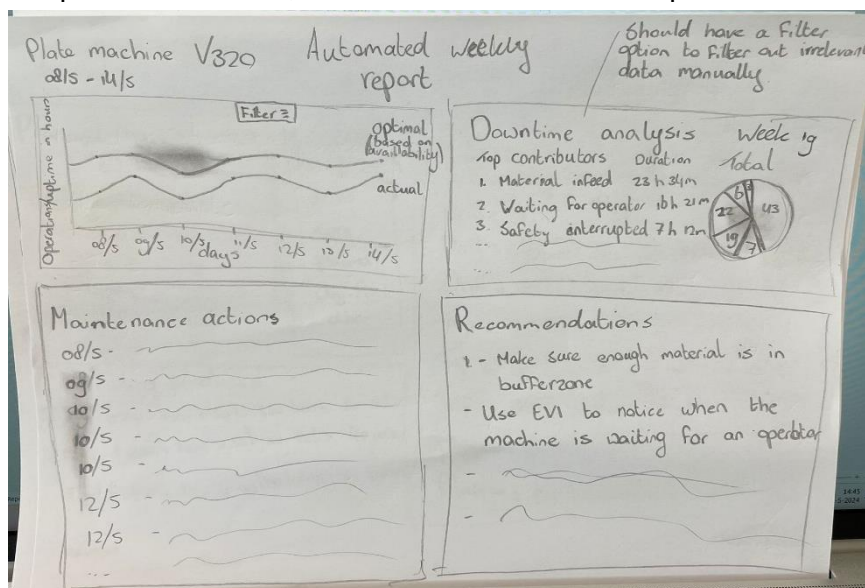 Plate machine V320
08/5 - 14/5
Automated weekly
report
Should have a filter
option to filter out irrelevant
data manually.
Operational uptime in hours
Filter
optimal
(based on
availability)
actual
08/5 09/5 10/5 11/5 12/5 13/5 14/5
days
Downtime analysis Week 19
Top contributors Duration Total
1. Material infeed 23 h 34m
2. Waiting for operator 16 h 21m
3. Safety interrupted 7 h 12m
...
43
7
19
22
6
Maintenance actions
08/5 -
09/5 -
10/5 -
10/5 -
10/5 -
12/5 -
12/5 -
...
Recommendations
1. - Make sure enough material is in
bufferzone
- Use EVI to notice when the
machine is waiting for an operator
-
-
14:45